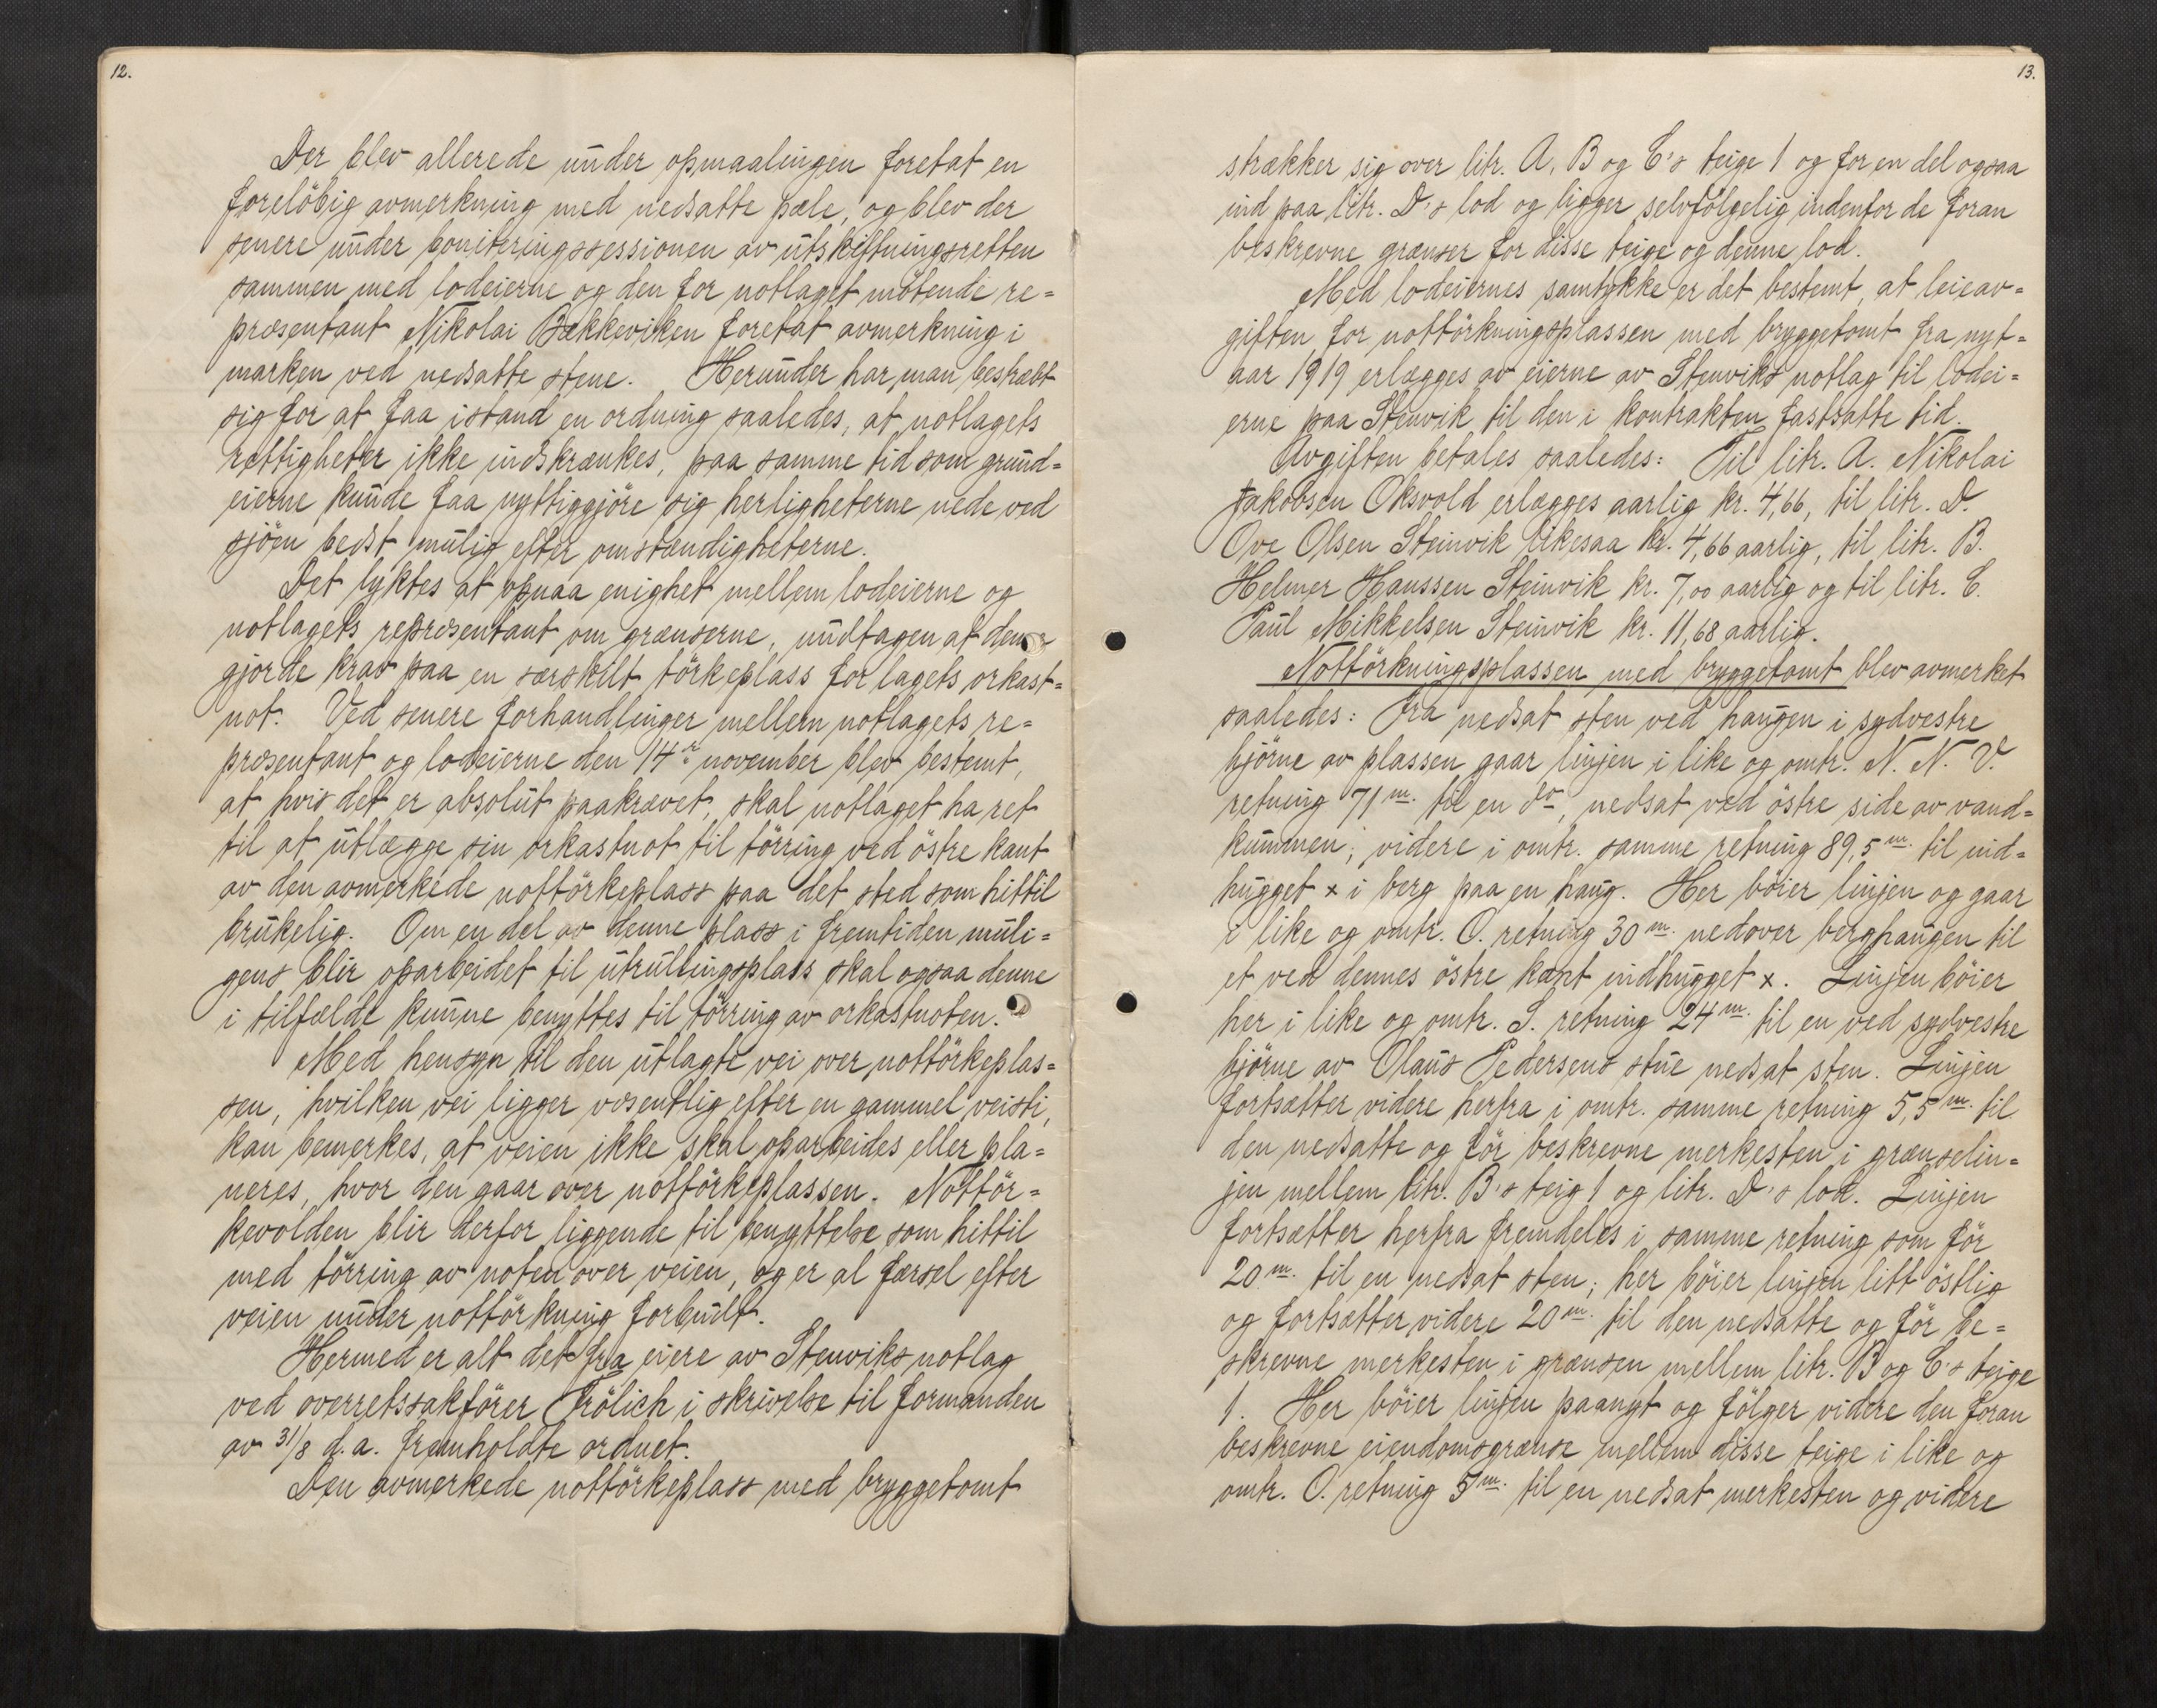 12.
Der blev allerede under opmaalingen foretat en
forelöbig avmerkning med nedsatte pæle, og blev der
senere under boniteringssessionen av utskiftningsretten
sammen med lodeierne og den for notlaget mötende re=
præsentant Nikolai Bækkeviken foretat avmerkning i
marken ved nedsatte stene. Herunder har man bestræbt
sig for at faa istand en ordning saaledes, at notlagets
rettigheter ikke indskrænkes, paa samme tid som grund=
eierne kunde faa nyttiggjöre sig herligheterne nede ved
sjöen bedst mulig efter omstændigheterne.
Det lyktes at opnaa enighet mellem lodeierne og
notlagets repræsentant om grænserne, undtagen at denne
gjorde krav paa en særskilt törkeplass for lagets orkast=
not. Ved senere forhandlinger mellem notlagets re=
præsentant og lodeierne den 14de november blev bestemt,
at hvis det er absolut paakrævet, skal notlaget ha ret
til at utlægge sin orkastnot til törring ved östre kant
av den avmerkede nottörkeplass paa det sted som hittil
brukelig. Om en del av denne plass i fremtiden muli=
gens blir oparbeidet til utrullingsplass skal ogsaa denne
i tilfælde kunne benyttes til törring av orkastnoten.
Med hensyn til den utlagte vei over nottörkeplas=
sen, hvilken vei ligger væsentlig efter en gammel veisti,
kan bemerkes, at veien ikke skal oparbeides eller pla=
neres, hvor den gaar over nottörkeplassen. Nottör=
kevolden blir derfor liggende til benyttelse som hittil
med törring av noten over veien, og er al færsel efter
veien under nottörkning forbudt.
Hermed er alt det fra eiere av Stenviks notlag
ved overretssakförer Frölich i skrivelse til formanden
av 31/8 d.a. fremholdte ordnet.
Den avmerkede nottörkeplass med bryggetomt
13.
strækker sig over litr. A, B og C's teige 1 og for en del ogsaa
ind paa litr. D's lod og ligger selvfölgelig indenfor de foran
beskrevne grænser for disse teige og denne lod.
Med lodeiernes samtykke er det bestemt, at leieav=
giften for nottörkningsplassen med bryggetomt fra nyt=
aar 1919 erlægges av eierne av Stenviks notlag til lodei=
erne paa Stenvik til den i kontrakten fastsatte tid.
Avgiften betales saaledes: Til litr. A. Nikolai
Jakobsen Oksvold erlægges aarlig kr. 4,66, til litr. D.
Ove Olsen Steinvik likesaa kr. 4,66 aarlig, til litr. B.
Helmer Hanssen Steinvik kr. 7,00 aarlig og til litr. C.
Paul Mikkelsen Steinvik kr. 11,68 aarlig.
Nottörkningsplassen med bryggetomt blev avmerket
saaledes: Fra nedsat sten ved haugen i sydvestre
hjörne av plassen gaar linjen i like og omtr. N. N. V.
retning 71 m. til en do, nedsat ved östre side av vand=
kummen; videre i omtr. samme retning 89,5 m. til ind=
hugget x i berg paa en haug. Her böier linjen og gaar
i like og omtr. O. retning 30 m. nedover berghaugen til
et ved dennes östre kant indhugget x. Linjen böier
her i like og omtr. S. retning 24 m. til en ved sydvestre
hjörne av Olaus Pedersens stue nedsat sten. Linjen
fortsætter videre herfra i omtr. samme retning 5,5 m. til
den nedsatte og för beskrevne merkesten i grænselin=
jen mellem litr. B's teig 1 og litr. D's lod. Linjen
fortsætter herfra fremdeles i samme retning som för
20 m. til en nedsat sten; her böier linjen litt östlig
og fortsætter videre 20 m. til den nedsatte og för be=
skrevne merkesten i grænsen mellem litr. B og C's teige
1. Her böier linjen paanyt og fölger videre den foran
beskrevne eiendomsgrænse mellem disse teige i like og
omtr. O. retning 5 m. til en nedsat merkesten og videre